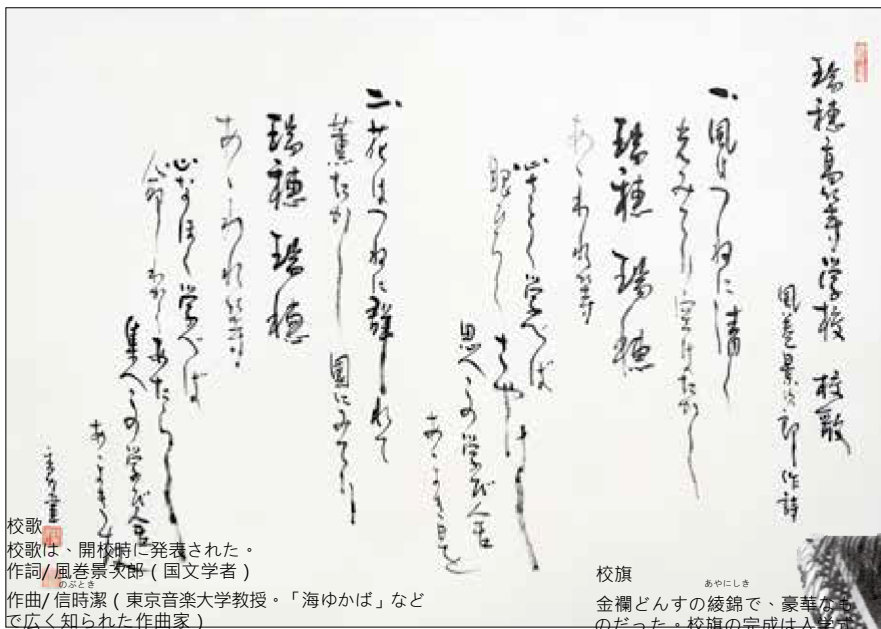 瑞穂高等学校 校歌
風巻景次郎 作詩
一、風はつねに清く
光みてり 空はたかし
瑞穂 瑞穂
あゝわれ等
心さとく学べば
眼ひらく
思へこの学び舎
あゝよき日を
二、花はつねに群れて
薫たかし 園にみてり
瑞穂 瑞穂
あゝわれ等
心なほく学べば
命わかく あたらし
集へこの学び舎
あゝよき
校歌
校歌は、開校時に発表された。
作詞/風巻景次郎(国文学者)
のぶとき
作曲/信時潔(東京音楽大学教授。「海ゆかば」など
で広く知られた作曲家)
校旗
あやにしき
金襴どんすの綾錦で、豪華なも
のだった。校旗の完成は入学式